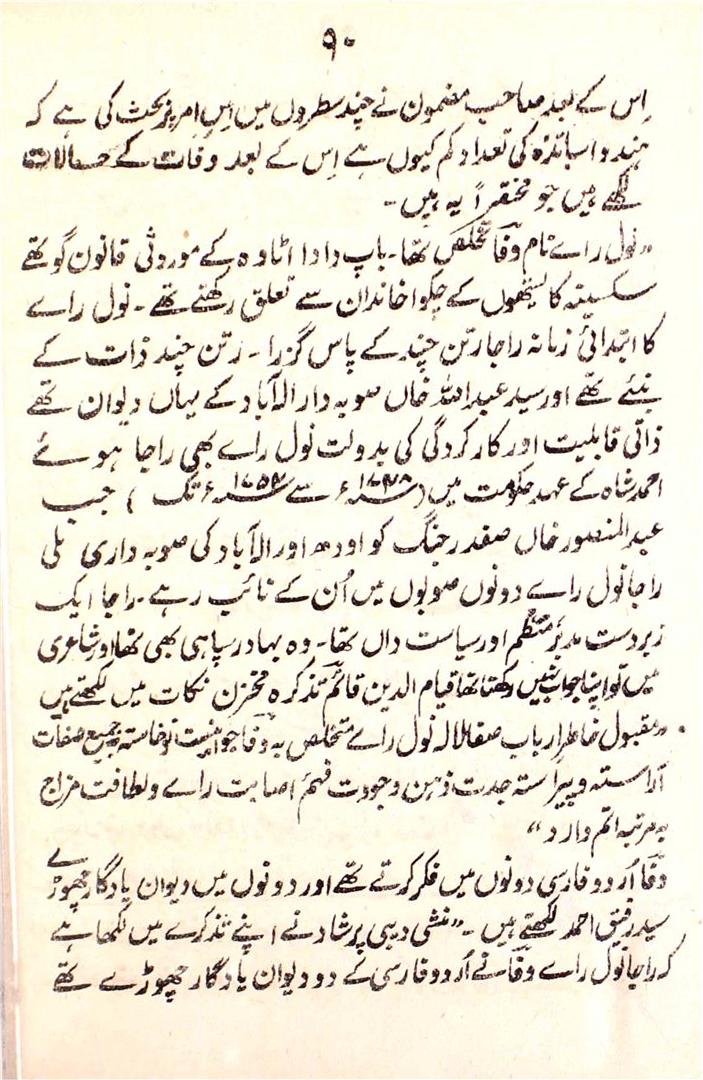 ۹۰
اِس کے بعد صاحب مضمون نے چند سطروں میں اِس امر پر بحث کی ہے کہ
ہندو اساتذہ کی تعداد کم کیوں ہے اِس کے بعد وفات کے حسالات
لکھے ہیں جو مختصراً یہ ہیں ۔
"نول راے نام وفا تخلص تھا۔ باپ دادا اٹاوہ کے موروثی قانون گو تھے
سکسینہ کائستھوں کے چکوا خاندان سے تعلق رکھتے تھے ۔ نول راے
کا ابتدائی زمانہ راجا رتن چند کے پاس گزرا ۔ رتن چند ذات کے
بنئے تھے اور سید عبداللہ خاں صوبہ دار الہٰ آباد کے یہاں دیوان تھے
ذاتی قابلیت اور کارکردگی کی بدولت نول راے بھی راجا ہوئے
احمد شاہ کے عہد حکومت میں (۱۷۴۸ء سے ۱۷۵۴ء تک ) جب
عبدالمنصور خاں صفدر جنگ کو اودھ اور الہٰ آباد کی صوبہ داری ملی
راجا نول راے دونوں صوبوں میں اُن کے نائب رہے ۔ راجا ایک
زبردست مدبر منتظم اور سیاست داں تھا۔ وہ بہادر سپاہی بھی تھا اور شاعری
میں تو اپنا جواب نہیں رکھتا تھا قیام الدین قائم تذکرہ مخزن نکات میں لکھتے ہیں
"مقبول خاطر ارباب صفا لالہ نول راے متخلص بہ وفا جوانیست نوخاستہ بجمیع صفات
آراستہ و پیراستہ جدت ذہن وجودت فہم اصابت راے و لطافت مزاج
بہ مرتبہ اتم دارد"
وفا اُردو فارسی دونوں میں فکر کرتے تھے اور دونوں میں دیوان یادگار چھوڑے
سید رفیق احمد لکھتے ہیں ۔ "منشی دیبی پرشاد نے اپنے تذکرے میں لکھا ہے
کہ راجا نول راے وفا نے اُردو فارسی کے دو دیوان یادگار چھوڑے تھے